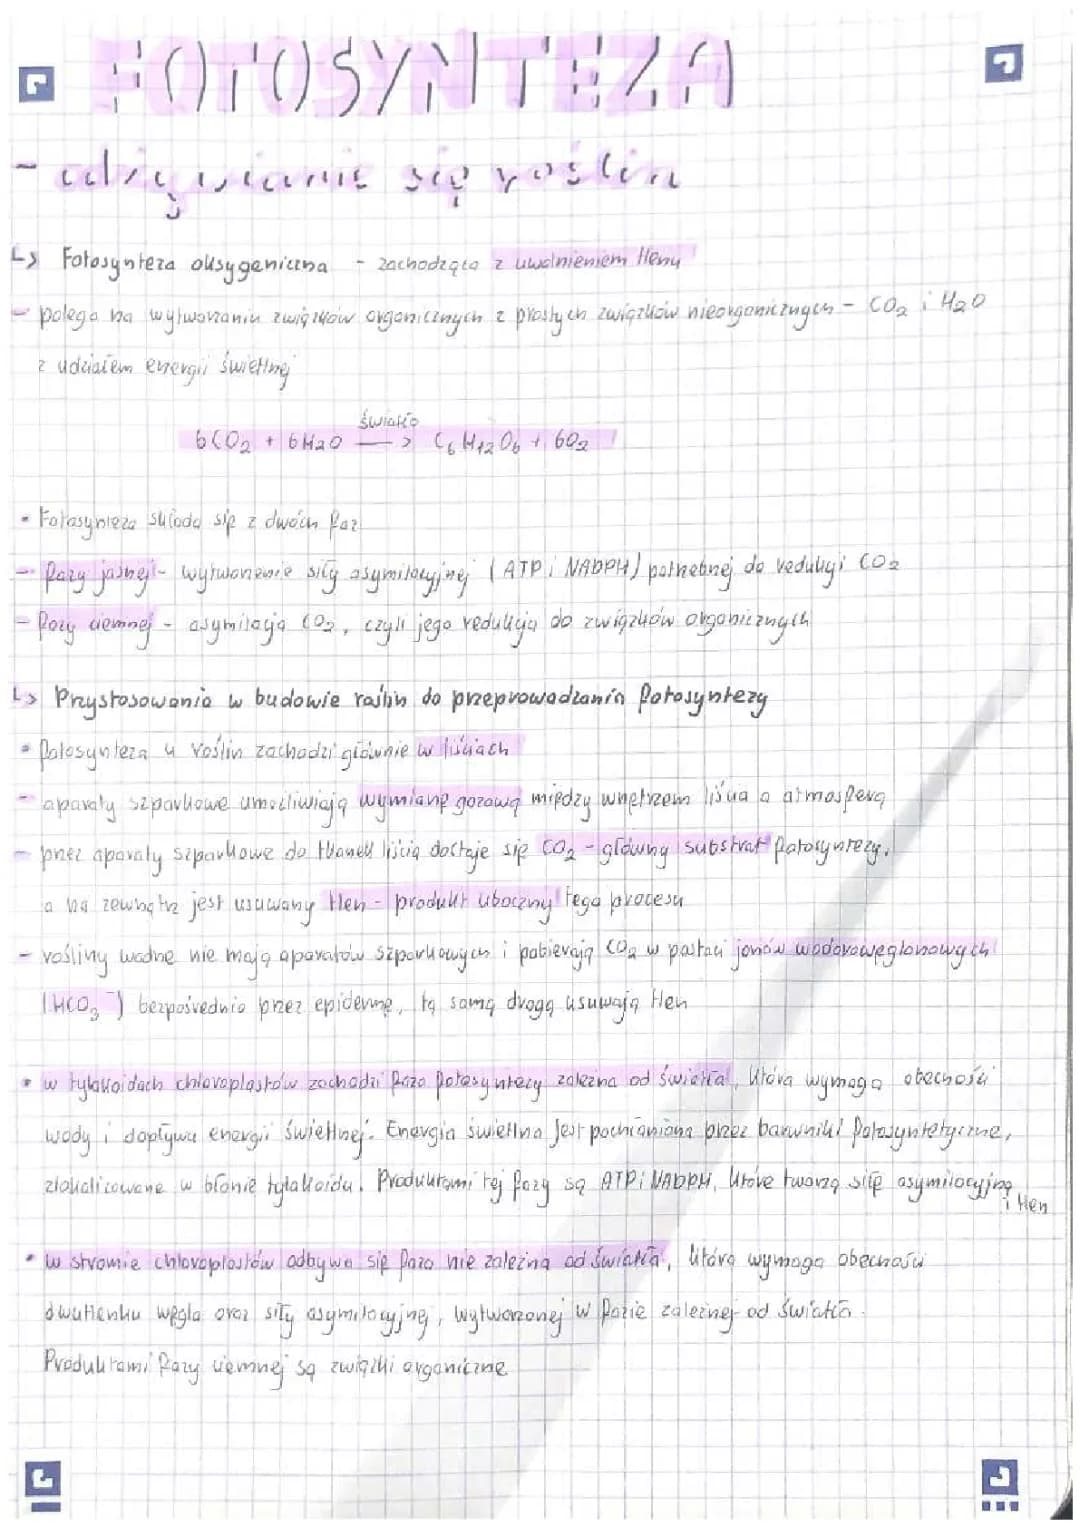 FOTOSYNTEZA
- odżywianie się roślin
↳ Fotosynteza oksygeniczna - zachodząca z uwolnieniem tlenu
- polega na wytwarzaniu związków organicznych z prostych związków nieorganicznych - CO₂ i H₂O
z udziałem energii świetlnej
światło
6CO₂ + 6H₂O → C₆H₁₂O₆ + 6O₂
• Fotosynteza składa się z dwóch faz
- fazy jasnej - wytworzenie siły asymilacyjnej (ATP i NADPH) potrzebnej do redukcji CO₂
- fazy ciemnej - asymilacja CO₂, czyli jego redukcja do związków organicznych
↳ Przystosowania w budowie roślin do przeprowadzania fotosyntezy
• fotosynteza u roślin zachodzi głównie w liściach
- aparaty szparkowe umożliwiają wymianę gazową między wnętrzem liścia a atmosferą
- przez aparaty szparkowe do tkanek liścia dostaje się CO₂ - główny substrat fotosyntezy,
a na zewnątrz jest usuwany tlen - produkt uboczny tego procesu
- rośliny wodne nie mają aparatów szparkowych i pobierają CO₂ w postaci jonów wodorowęglanowych
(HCO₃⁻) bezpośrednio przez epidermę, tą samą drogą usuwają tlen
• w tylakoidach chloroplastów zachodzi faza fotosyntezy zależna od światła, która wymaga obecności
wody i dopływu energii świetlnej. Energia świetlna jest pochłaniana przez barwniki fotosyntetyczne,
zlokalizowane w błonie tylakoidu. Produktami tej fazy są ATP i NADPH, które tworzą siłę asymilacyjną
i tlen
• w stromie chloroplastów odbywa się faza nie zależna od światła, która wymaga obecności
dwutlenku węgla oraz siły asymilacyjnej, wytworzonej w fazie zależnej od światła.
Produktami fazy ciemnej są związki organiczne